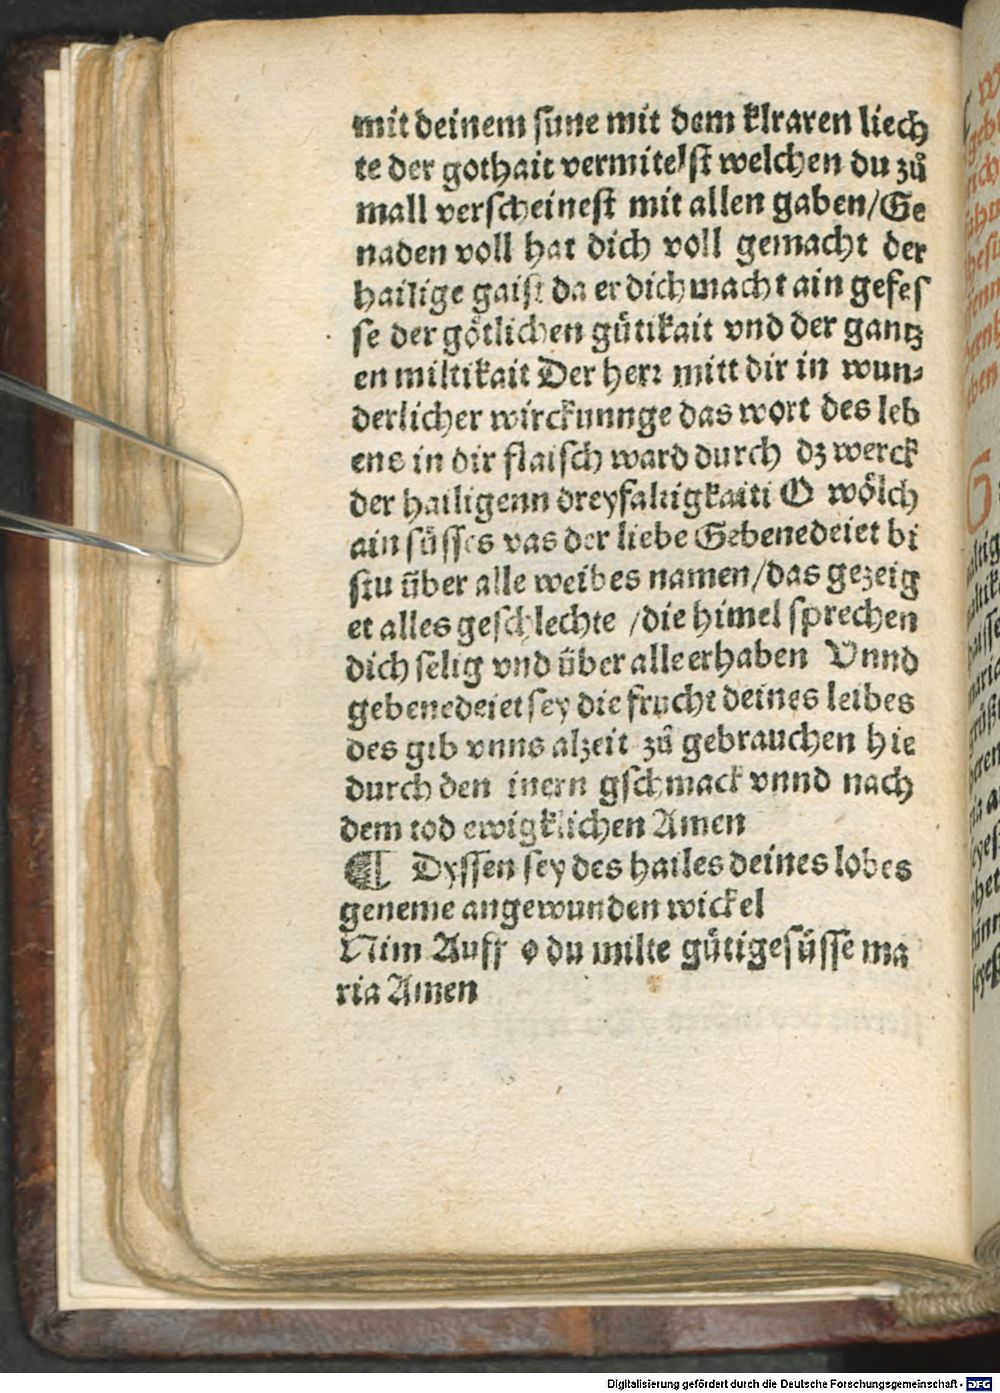 mit deinem sune mit dem klraren liech
te der gothait vermitelst welchen du zů
mall verscheinest mit allen gaben/Ge
naden voll hat dich voll gemacht der
hailige gaist da er dich macht ain gefes
se der götlichen gütikait vnd der gantz
en miltikait Der herr mitt dir in wun⸗
derlicher wirckunnge das wort des leb
ens in dir flaisch ward durch dz werck
der hailigenn dreyfaltigkaiti O wölch
ain süsses vas der liebe Gebenedeiet bi
stu über alle weibes namen/das gezeig
et alles geschlechte /die himel sprechen
dich selig vnd über alle erhaben Vnnd
gebenedeiet sey die frucht deines leibes
des gib vnns alzeit zů gebrauchen hie
durch den inern gschmack vnnd nach
dem tod ewigklichen Amen
¶ Dyssen sey des hailes deines lobes
geneme angewunden wickel
Nim Auff o du milte gütige süsse ma
ria Amen
Digitalisierung gefördert durch die Deutsche Forschungsgemeinschaft - DFG